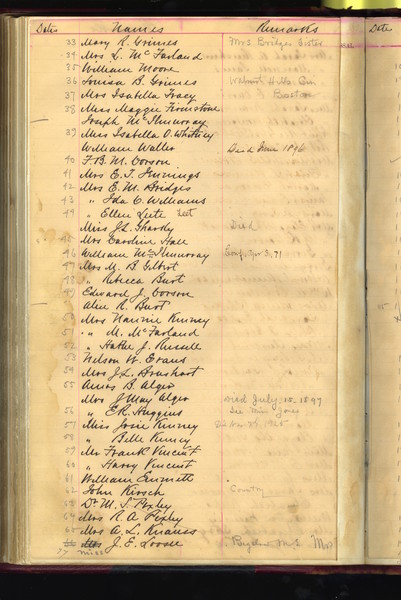 Dates Names Remarks Date
33 Mary R. Grimes Mrs Bridges Sister
34 Mrs L. McFarland
35 William Moore
36 Louisa B. Grimes Walnut Hills Cin
37 Mrs Isabella Tracy Boston
38 Miss Maggie Finistone
Joseph McIlmurray
39 Miss Isabella O. Whitney
William Waller Died June 1896
40 F. B. M. Corson
41 Mrs E. T. Jennings
42 Mrs E. M. Bridges
43 " Ida C. Williams
44 " Ellen Leete Leet
Miss J. L. Ghardy Died
45 Mrs Caroline Hale
46 William McIlmurray
47 Mrs M. B. Gilbert
48 " Rebecca Burt
49 Edward J. Corson
Alice R. Burt
Mrs Nannie Kinney
" M. McFarland
52 " Hattie J. Russell
53 Wilson W. Evans
54 Mrs J. L. Brashart
55 Amos B. Alger
Mrs J May Alger Died July 15. 1897
56 " E. R. Huggins See Miss Jones
57 Miss Josie Kinney
58 " Belle Kinney
59 Mr Frank Vincent
60 " Harry Vincent
61 William Emmett
62 John Kirsch Country
63 Dr M. S. Pixley
64 Mrs R. A. Pixley
65 Mrs A. L. Knauss
66 Mrs J. E. Loose
Miss